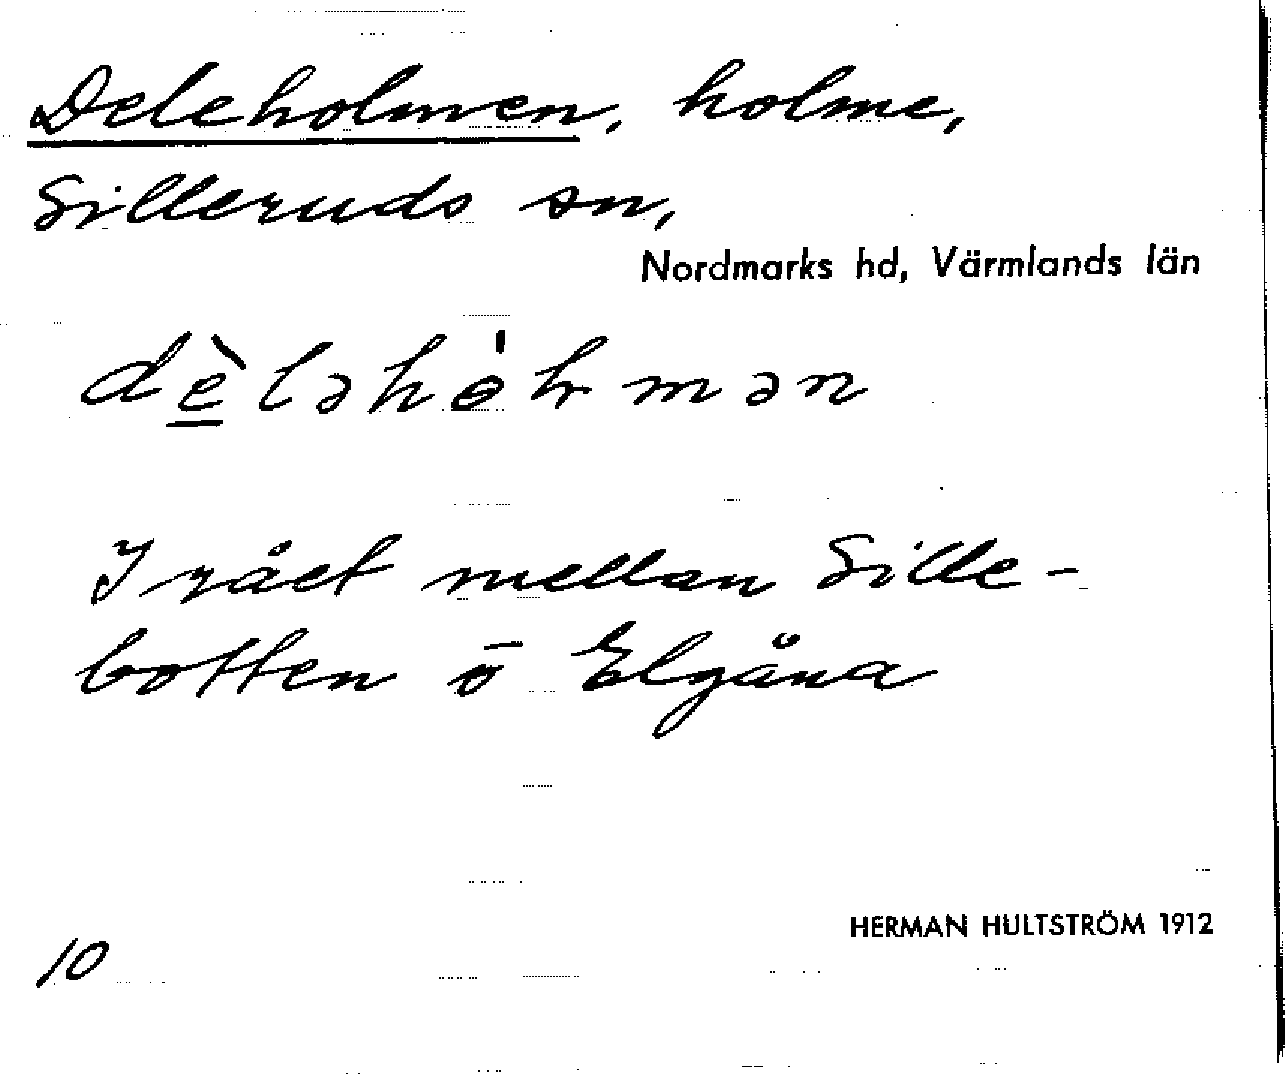 Deleholmen, holme,
Silleruds sn,
Nordmarks hd, Värmlands län
dè̱ləhɵ́hrmən
I rået mellan Sille-
botten o Elgåna
HERMAN HULTSTRÖM 1912
10